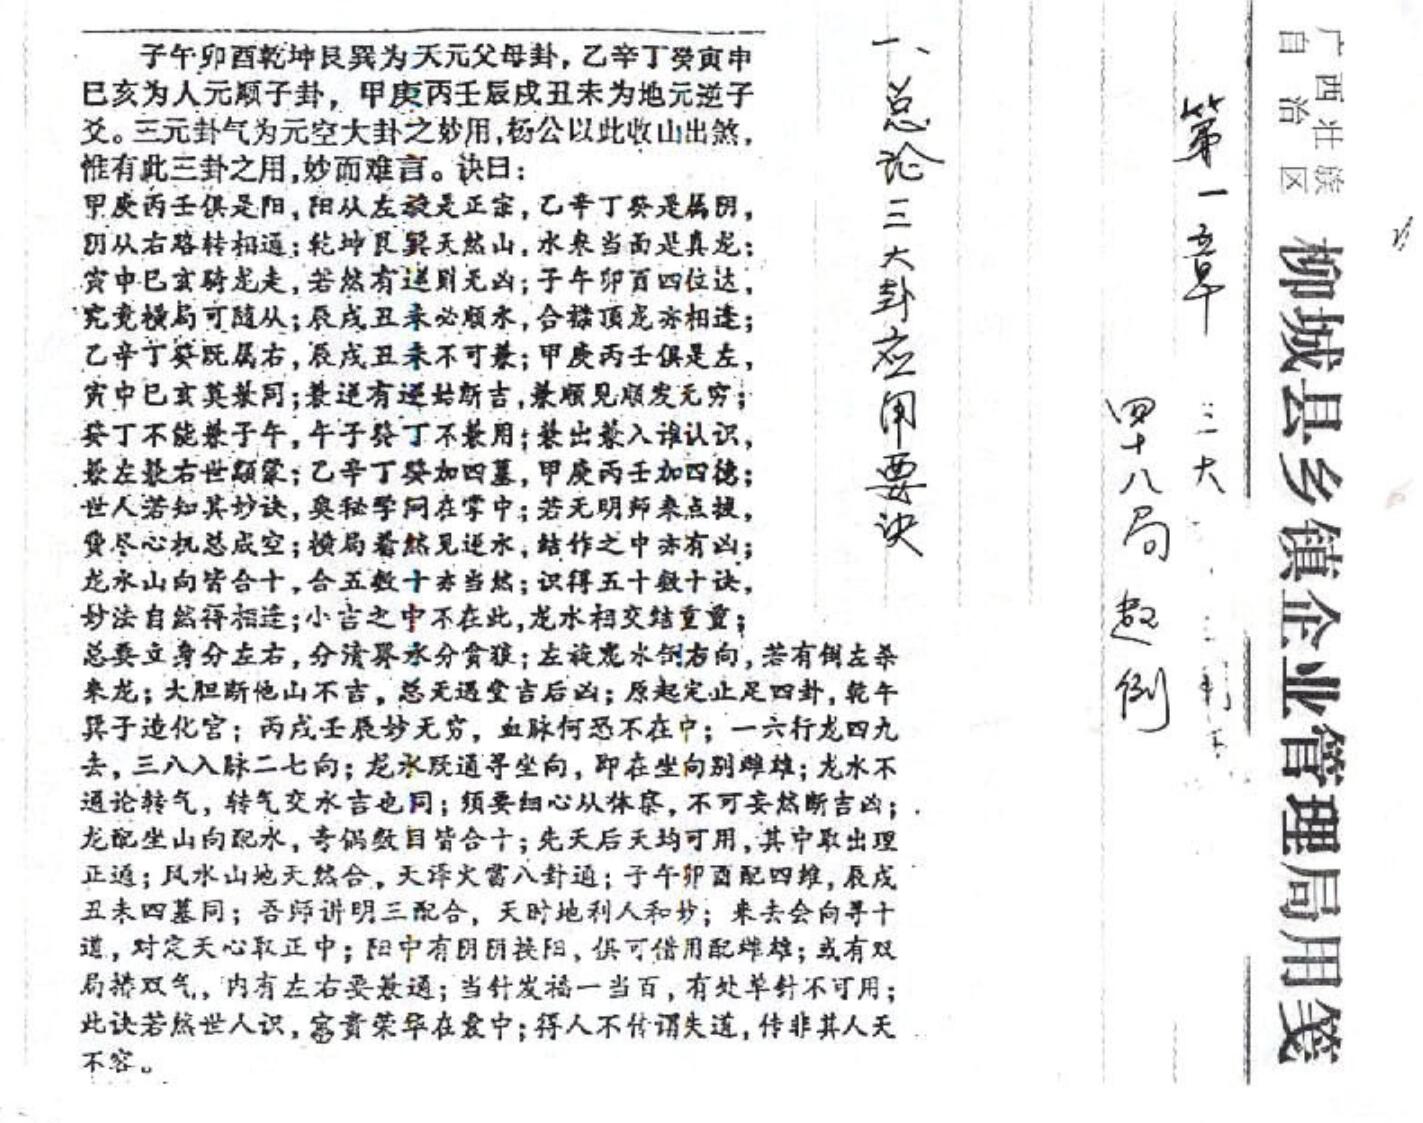 广西壮族
自治区
柳城县乡镇企业管理局用笺
第一章 三大
四十八局起例
一、总论三大卦应用要诀
子午卯酉乾坤艮巽为天元父母卦，乙辛丁癸寅申
巳亥为人元顺子卦，甲庚丙壬辰戌丑未为地元逆子
爻。三元卦气为元空大卦之妙用，杨公以此收山出煞，
惟有此三卦之用，妙而难言。诀曰：
甲庚丙壬俱是阳，阳从左旋是正宗，乙辛丁癸是属阴，
阴从右路转相通；乾坤艮巽天然山，水来当面是真龙；
寅申巳亥骑龙走，若然有逆则无凶；子午卯酉四位达，
究竟横局可随从；辰戌丑未必顺水，合襟顶龙亦相逢；
乙辛丁癸既属右，辰戌丑未不可兼；甲庚丙壬俱是左，
寅申巳亥莫兼同；兼逆有逆始断吉，兼顺见顺发无穷；
癸丁不能兼子午，午子癸丁不兼用；兼出兼入谁认识，
兼左兼右世颛蒙；乙辛丁癸加四墓，甲庚丙壬加四德；
世人若知其妙诀，奥秘学问在掌中；若无明师来点拨，
费尽心机总成空；横局着然见逆水，结作之中亦有凶；
龙水山向皆合十，合五数十亦当然；识得五十数十诀，
妙法自然得相逢；小吉之中不在此，龙水相交结重重；
总要立身分左右，分清界水分贪狼；左旋龙水倒右向，若有倒左杀
来龙；大胆断他山不吉，总无遇堂吉后凶；原起定止足四卦，乾午
巽子造化宫；丙戌壬辰妙无穷，血脉何恐不在中；一六行龙四九
去，三八入脉二七向；龙水既通寻坐向，即在坐向别雌雄；龙水不
通论转气，转气交水吉也同；须要细心从体察，不可妄然断吉凶；
龙配坐山向配水，奇偶数目皆合十；先天后天均可用，其中取出理
正通；风水山地天然合，天泽火雷八卦通；子午卯酉配四维，辰戌
丑未四墓同；吾师讲明三配合，天时地利人和妙；来去会向寻十
道，对定天心取正中；阳中有阴阴换阳，俱可借用配雌雄；或有双
局搭双气，内有左右要兼通；当针发福一当百，有处单针不可用；
此诀若然世人识，富贵荣华在衰中；得人不传谓失道，传非其人天
不容。